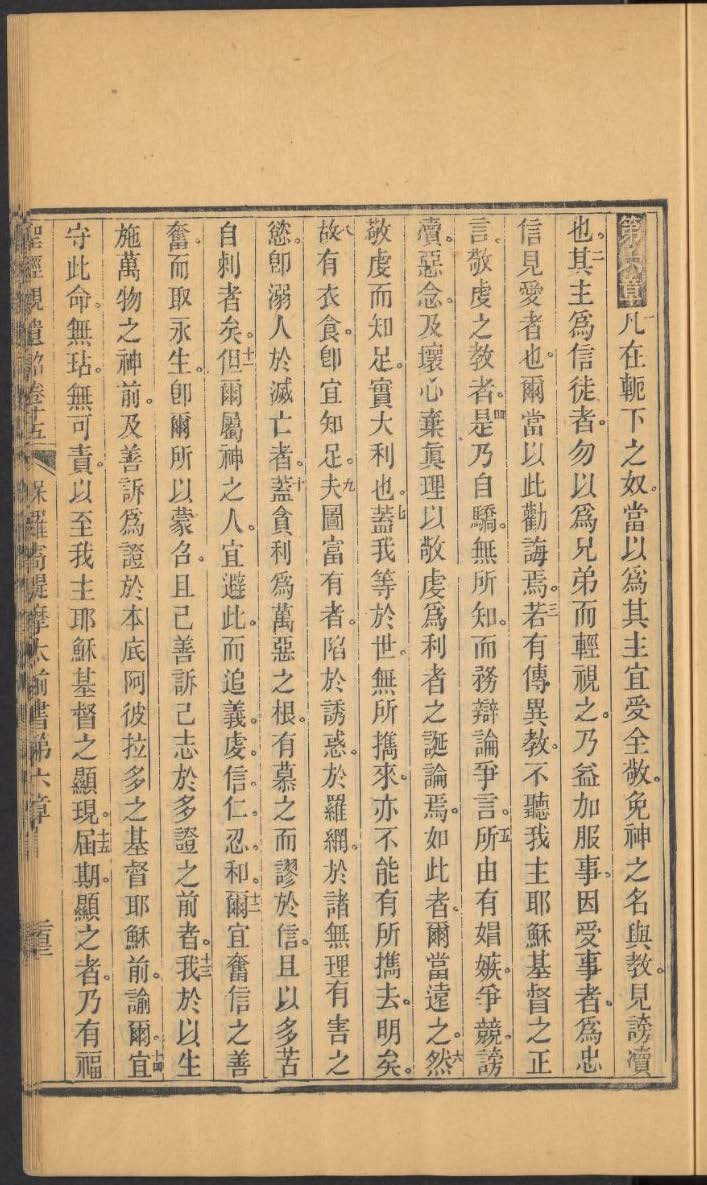 第六章一凡在軛下之奴。當以爲其主宜受全敬。免神之名與教。見謗瀆
也。二其主爲信徒者。勿以爲兄弟而輕視之。乃益加服事。因受事者。爲忠
信見愛者也。爾當以此勸誨焉。三若有傳異教。不聽我主耶穌基督之正
言。敬虔之教者。四是乃自驕。無所知。而務辯論爭言。五所由有娼嫉。爭競。謗
瀆。惡念。及壞心棄眞理以敬虔爲利者之誕論焉。如此者。爾當遠之。六然
敬虔而知足。實大利也。七蓋我等於世。無所攜來。亦不能有所攜去。明矣。
八故有衣食。卽宜知足。九夫圖富有者。陷於誘惑。於羅網。於諸無理有害之
慾。卽溺人於滅亡者。十蓋貪利爲萬惡之根。有慕之而謬於信。且以多苦
自刺者矣。十一但爾屬神之人。宜避此。而追義。虔。信。仁。忍。和。十二爾宜奮信之善
奮。而取永生。卽爾所以蒙召。且已善訴己志於多證之前者。十三我於以生
施萬物之神前。及善訴爲證於本底阿彼拉多之基督耶穌前。諭爾。十四宜
守此命。無玷。無可責。以至我主耶穌基督之顯現。十五屆期。顯之者。乃有福
聖經親遺詔卷十五 保羅寄提摩太前書第六章